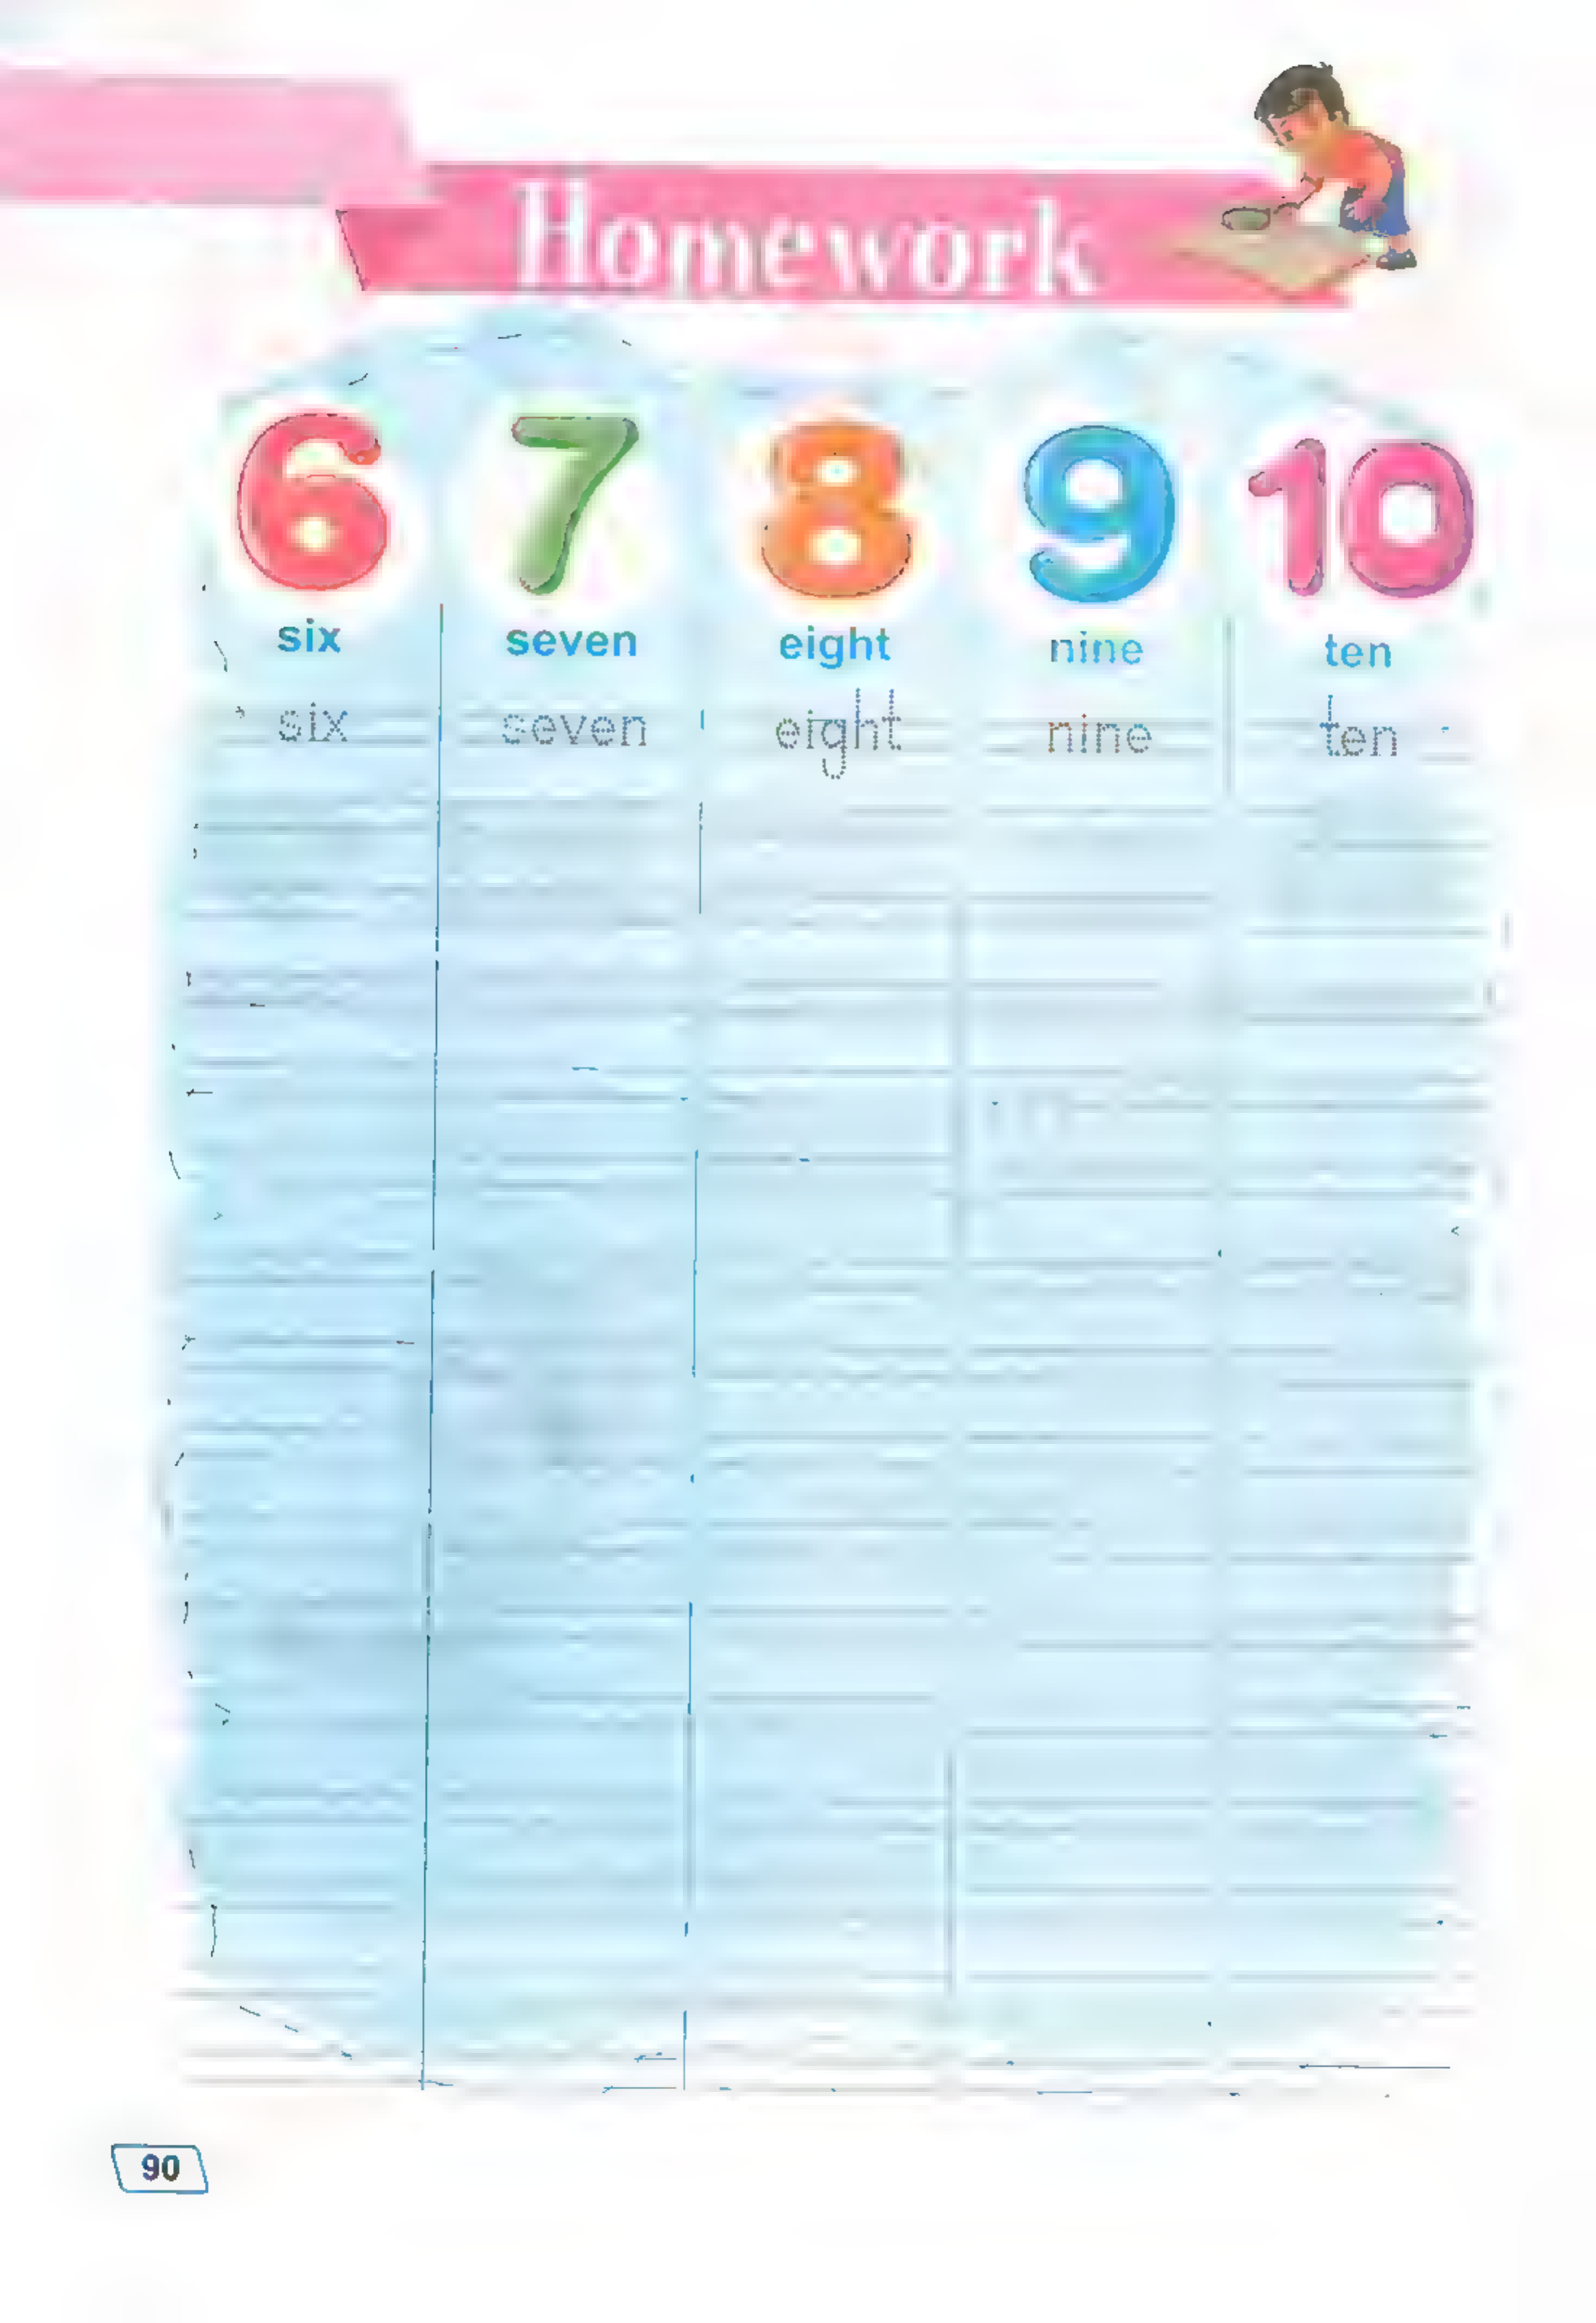 Homework
6 7 8 9 10
six seven eight nine ten
six seven eight nine ten
90